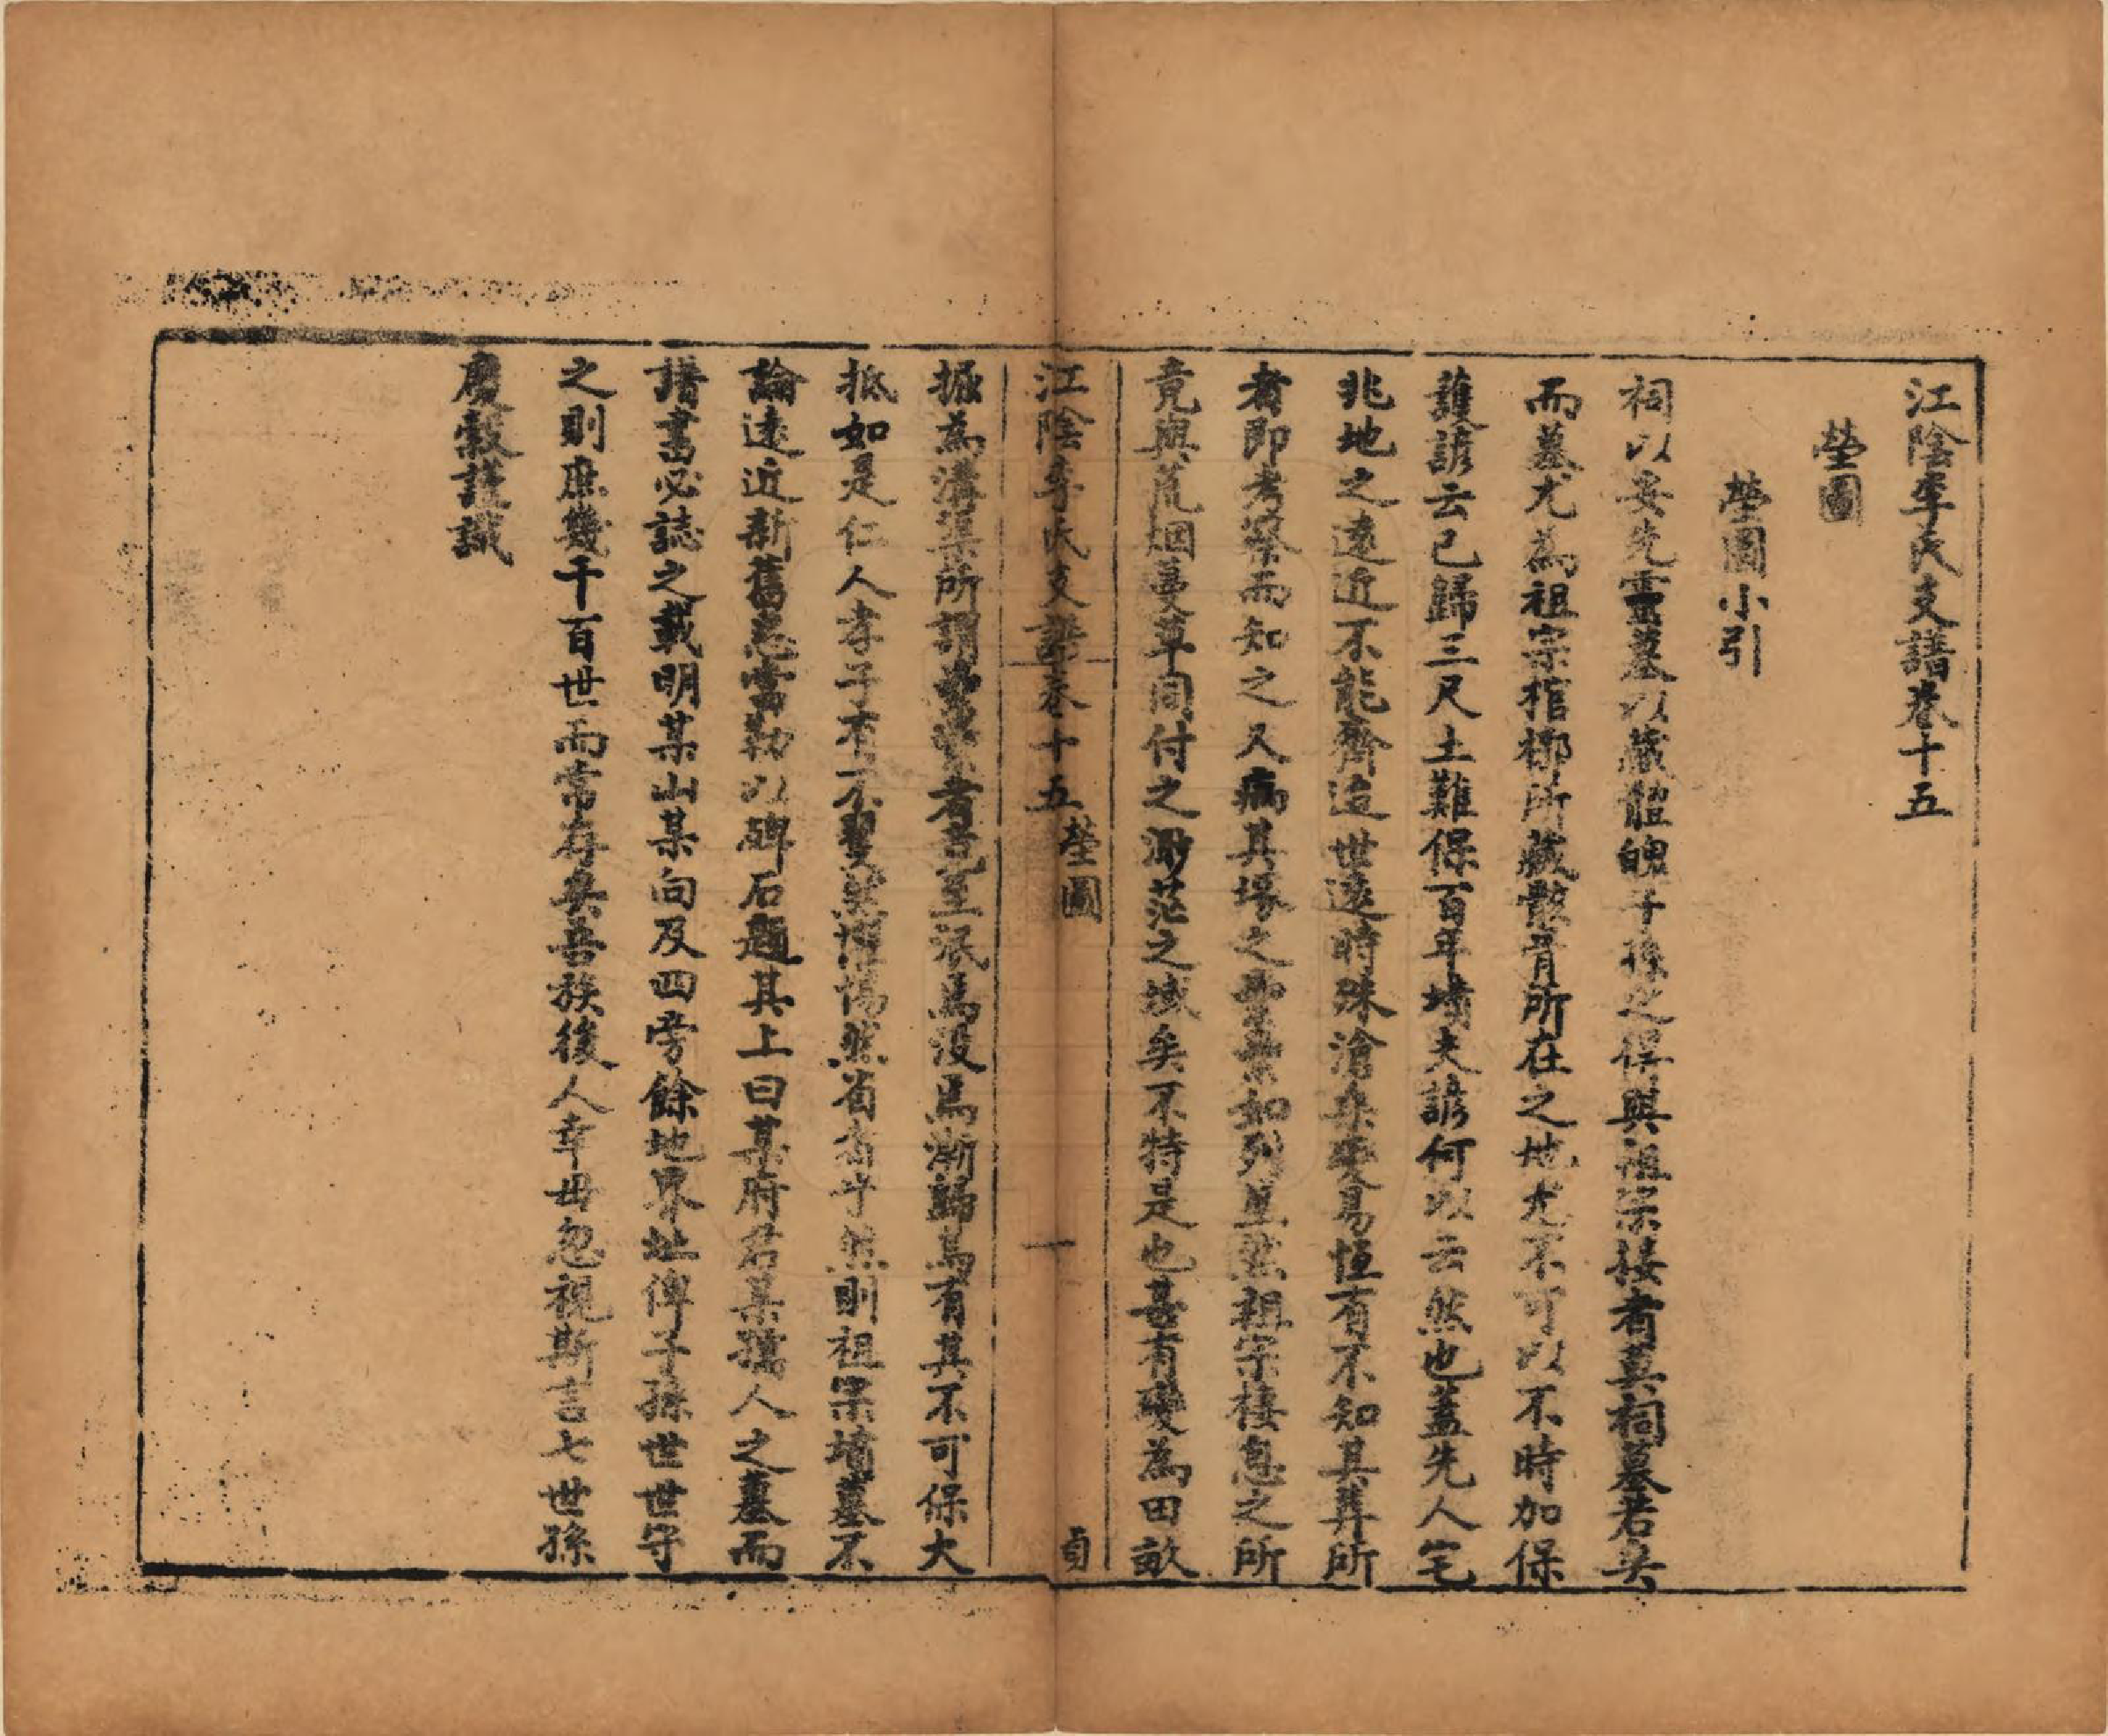 江陰季氏支譜卷十五
塋圖
塋圖小引
祠以妥先靈墓以藏體魄子孫之得與祖宗接者莫祠墓若矣
而墓尤為祖宗棺槨所藏骸骨所在之地尤不可以不時加保
護諺云已歸三尺土難保百年墳夫諺何以云然也蓋先人宅
兆地之遠近不能齊迨世遠時殊滄桑變易恒有不知其葬所
者即考察而知之又病其塚之纍纍如列星然祖宗棲息之所
竟與荒烟蔓草同付之渺茫之域矣不特是也甚有變為田畝
江陰季氏支譜卷十五
塋圖
一
貞
掘為溝渠所謂纍纍者竟至泯焉沒焉漸歸烏有其不可保大
抵如是仁人孝子有不瞿然惕然者乎然則祖宗墳墓不
論遠近新舊悉當勒以碑石題其上曰某府君某孺人之墓而
譜書必誌之載明某山某向及四旁餘地界址俾子孫世世守
之則庶幾千百世而常存矣吾族後人幸毋忽視斯言七世孫
慶穀謹識